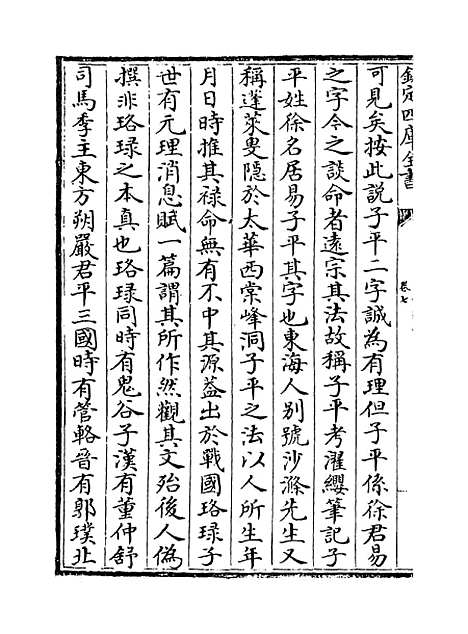 欽定四庫全書
卷七
可見矣按此說子平二字誠為有理但子平係徐君易
之字今之談命者遠宗其法故稱子平考濯纓筆記子
平姓徐名居易子平其字也東海人別號沙滌先生又
稱蓬萊叟隱於太華西棠峰洞子平之法以人所生年
月日時推其祿命無有不中其源益出於戰國珞琭子
世有元理消息賦一篇謂其所作然觀其文殆後人偽
撰非珞琭之本真也珞琭同時有鬼谷子漢有董仲舒
司馬季主東方朔嚴君平三國時有管輅晉有郭璞北